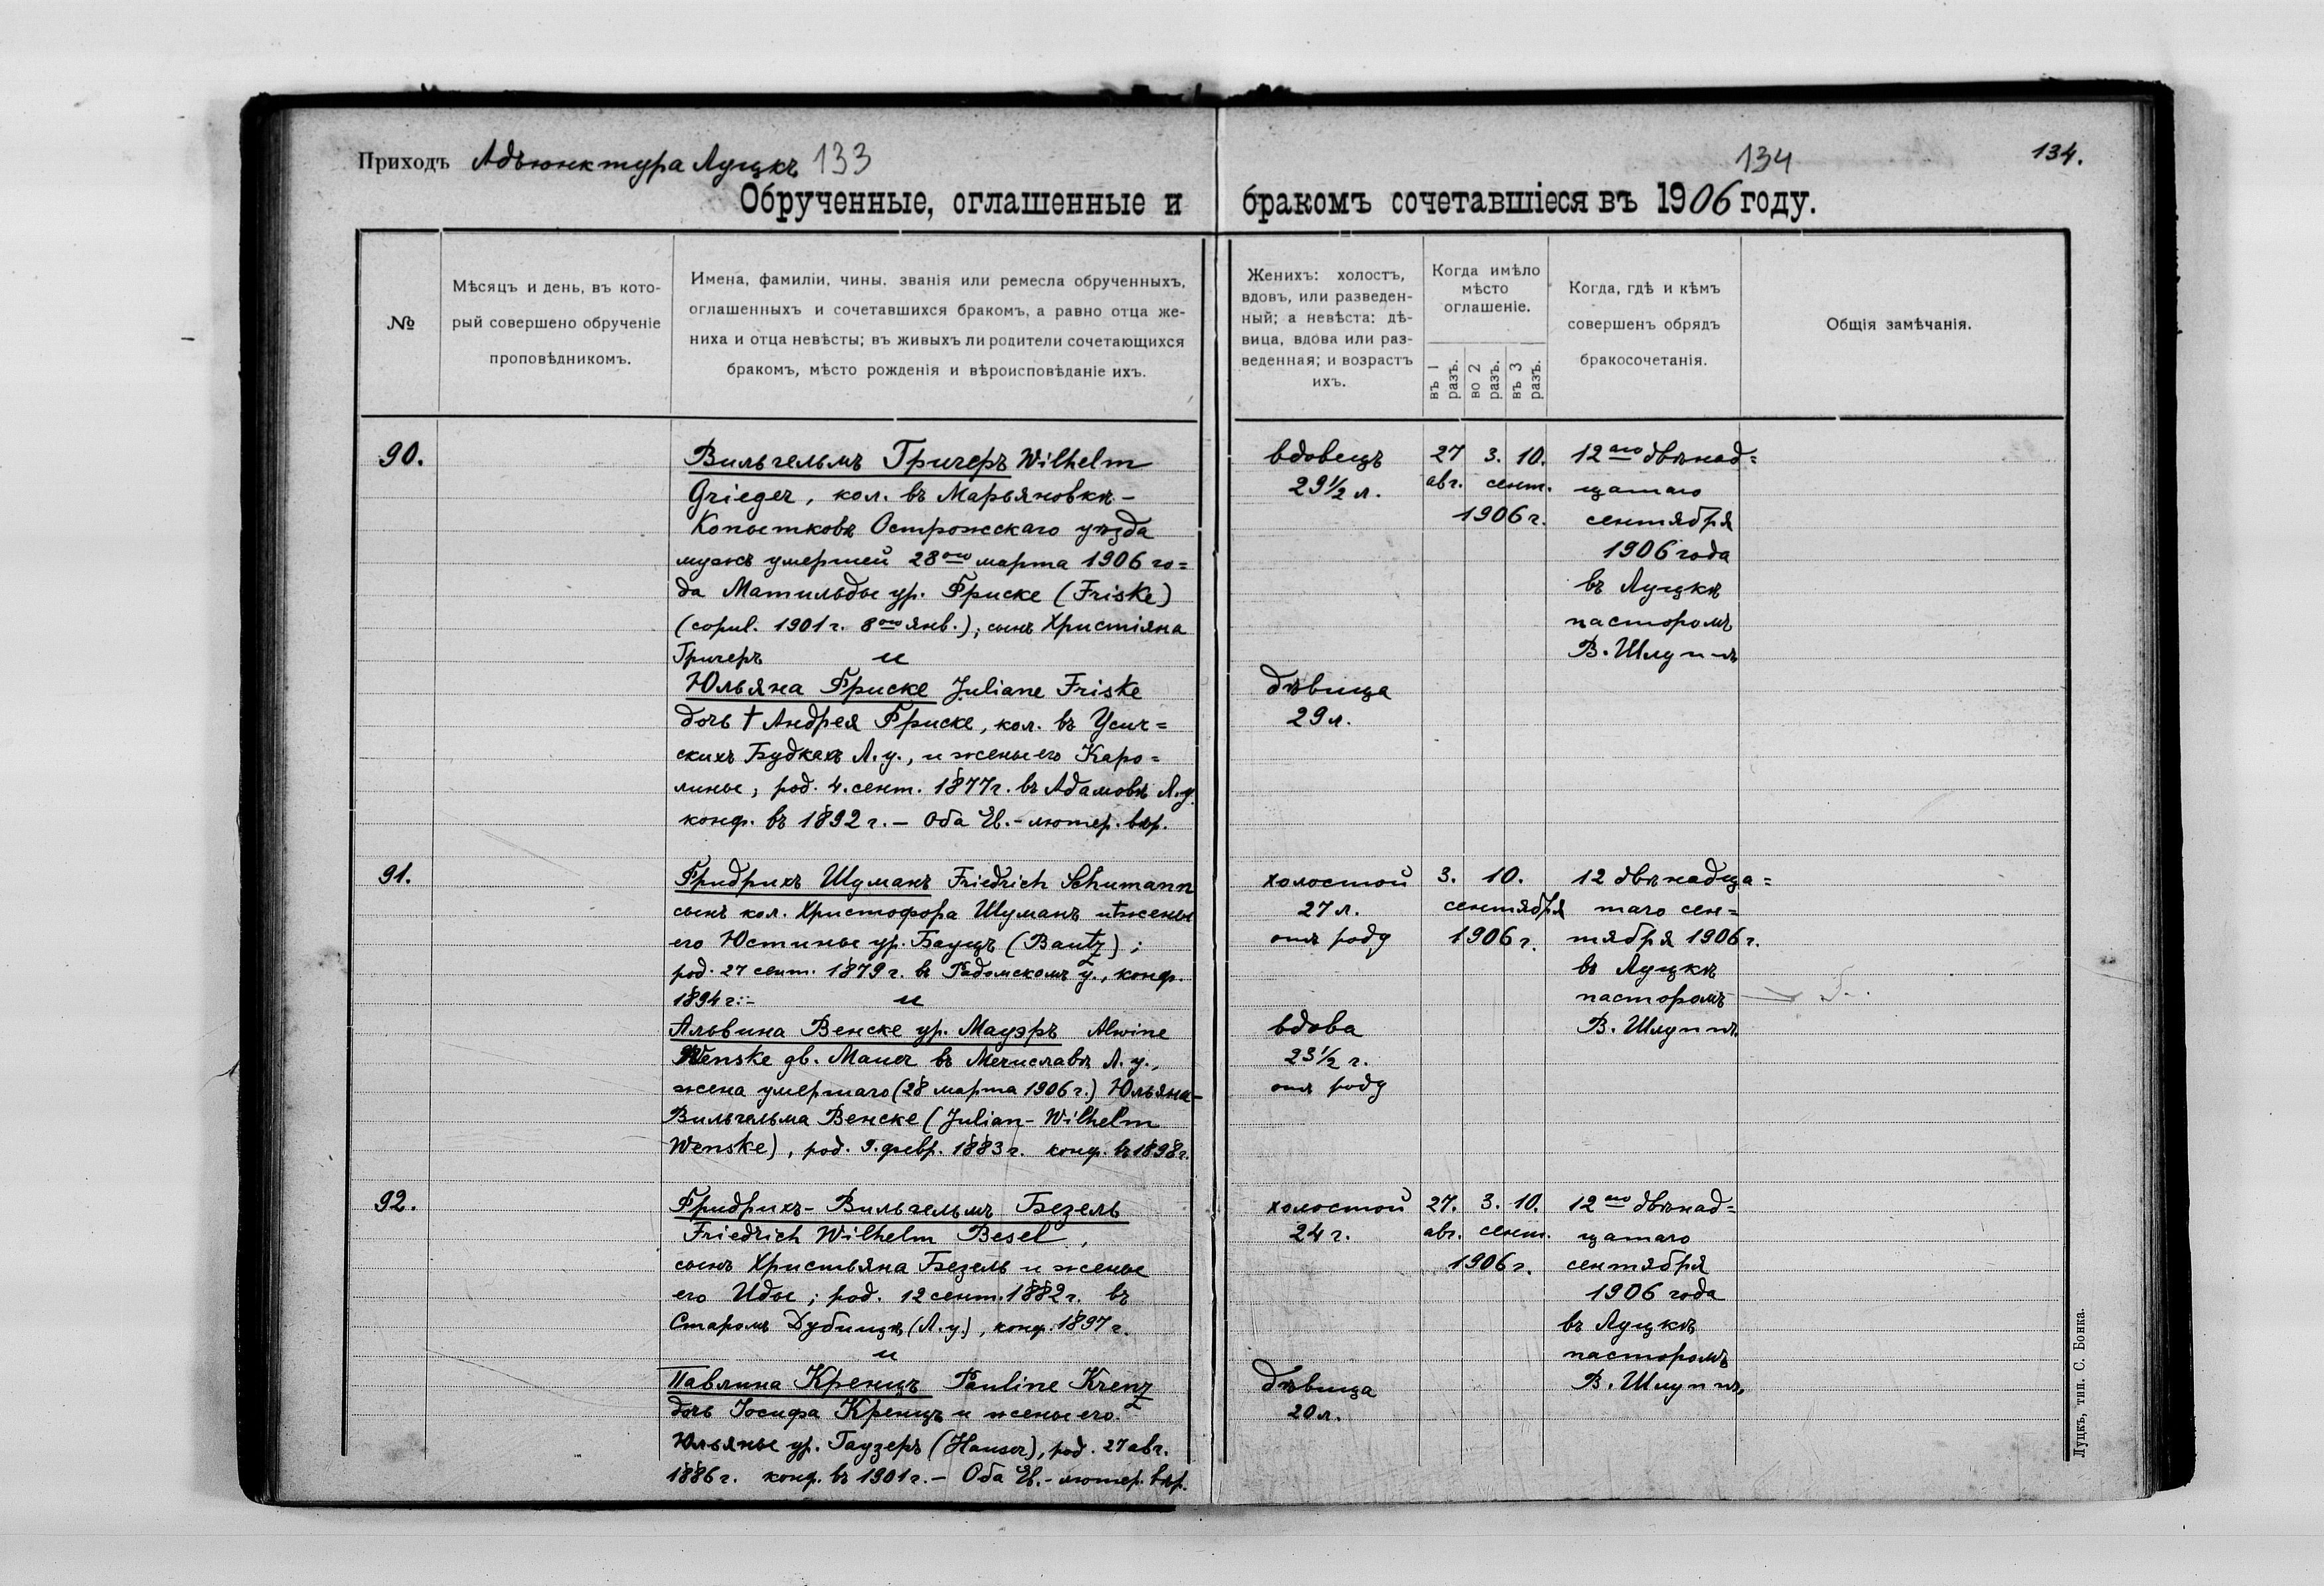 Приходъ Адъюнктура Луцкъ 133
134
134.
Обрученные, оглашенные и бракомъ сочетавшіеся въ 1906 году.
№
Мѣсяцъ и день, въ кото-
рый совершено обрученіе
проповѣдникомъ.
Имена, фамиліи, чины, званія или ремесла обрученныхъ,
оглашенныхъ и сочетавшихся бракомъ, а равно отца же-
ниха и отца невѣсты; въ живыхъ ли родители сочетающихся
бракомъ, мѣсто рожденія и вѣроисповѣданіе ихъ.
Женихъ: холостъ,
вдовъ, или разведен-
ный; а невѣста: дѣ-
вица, вдова или раз-
веденная; и возрастъ
ихъ.
Когда имѣло
мѣсто
оглашеніе.
въ 1
разъ.
во 2
разъ.
въ 3
разъ.
Когда, гдѣ и кѣмъ
совершенъ обрядъ
бракосочетанія.
Общія замѣчанія.
90.
Вильгельмъ Григеръ Wilhelm
Grieger, кол. въ Марьяновкѣ-
Копытковѣ Острожскаго уѣзда
мужъ умершей 28ого марта 1906 го=
да Матильды ур. Фриске (Friske)
(copul. 1901 г. 8ого янв.); сынъ Христіяна
Григеръ и
Юльяна Фриске Juliane Friske
дочь † Андрея Фриске, кол. въ Усич=
скихъ Будкахъ Л. у., и жены его Каро=
лины, род. 4. сент. 1877 г. въ Адамовѣ Л. у.
конф. въ 1892 г. – Оба Ев.-лютер. вѣр.
вдовецъ
29 1/2 л.
дѣвица
29 л.
27 3. 10.
авг. сент.
1906 г.
12аго двѣнад=
цатаго
сентября
1906 года
въ Луцкѣ
пасторомъ
В. Шлуппъ
91.
Фридрихъ Шуманъ Friedrich Schumann
сынъ кол. Христофора Шуманъ и † жены
его Юстины ур. Бауцъ (Bautz);
род. 27 сент. 1879 г. въ Радомскомъ у., конф.
1894 г.- и
Альвина Венске ур. Мауэръ Alwine
Wenske gb. Mauer въ Мечиславѣ Л. у.,
жена умершаго (28 марта 1906 г.) Юльяна-
Вильгельма Венске (Julian-Wilhelm
Wenske), род. 9. февр. 1883 г. конф. въ 1898 г.
холостой
27 л.
отъ роду
вдова
23 1/2 г.
отъ роду
3. 10.
сентября
1906 г.
12 двѣнадца=
таго сен=
тября 1906 г.
въ Луцкѣ
пасторомъ
В. Шлуппъ
92.
Фридрихъ-Вильгельмъ Безель
Friedrich Wilhelm Besel,
сынъ Христьяна Безель и жены
его Иды; род. 12 сент. 1882 г. въ
Старомъ Дубищѣ (Л. у.), конф. 1897 г.
и
Павлина Кренцъ Pauline Krenz
дочь Іосифа Кренцъ и жены его
Юльяны ур. Гаузеръ (Hauser), род. 27 авг.
1886 г. конф. въ 1901 г. – Оба Ев.-лютер. вѣр.
холостой
24 г.
дѣвица
20 л.
27. 3. 10.
авг. сент.
1906 г.
12аго двѣнад=
цатаго
сентября
1906 года
въ Луцкѣ
пасторомъ
В. Шлуппъ
Луцкъ, тип. С. Бонка.